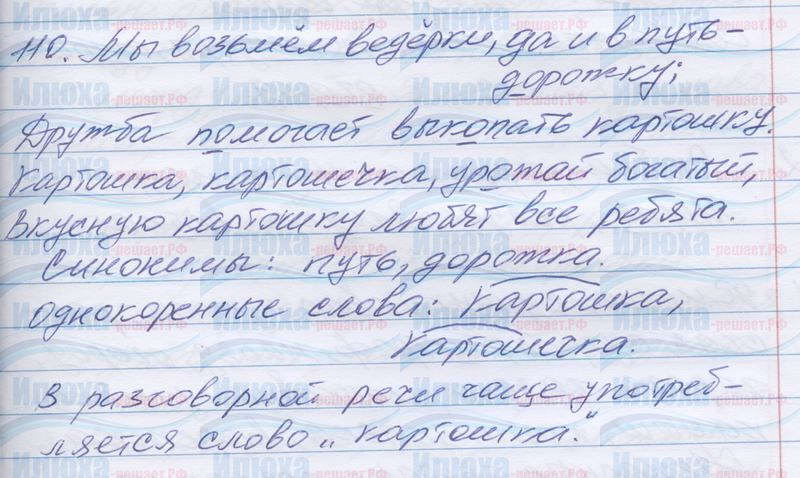 110. Мы возьмём ведёрки, да и в путь-
дорожку;
Дружба помогает выкопать картошку.
Картошка, картошечка, урожай богатый,
Вкусную картошку любят все ребята.
Синонимы: путь, дорожка.
Однокоренные слова: картошка,
картошечка.
В разговорной речи чаще употреб-
ляется слово „картошка."
Илюха
-решает.РФ